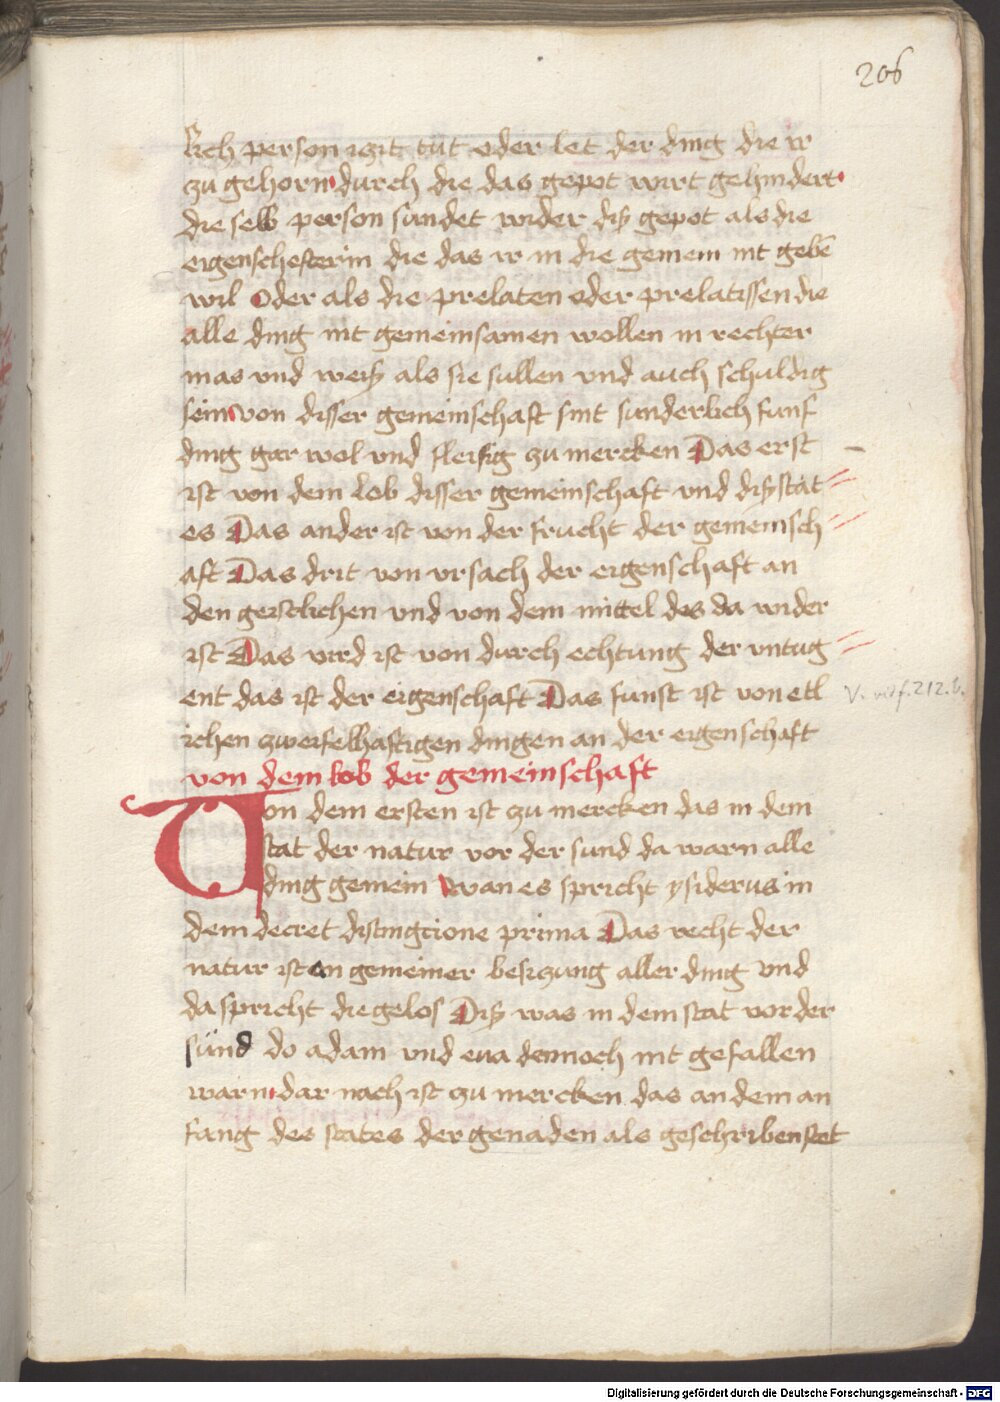 206
lich person izit tut oder let der ding die ir
zu gehorn durch die das gepot wirt gehindert
die selb person sundet wider diß gepot als die
eigenschefterin die das ir in die gemein nit gebē
wil Oder als die prelaten oder prelatissen die
alle ding nit gemeinsamen wollen in rechter
mas vnd weiß als sie sullen vnd auch schuldig
sein von disser gemeinschaft sint sunderlich funf
ding gar wol vnd fleisig zu mercken Das erst
ist von dem lob disser gemeinschaft vnd diß stat
es Das ander ist von der frucht der gemeinsch
aft Das drit von vrsach der eigenschaft an
den geistlichen vnd von dem mittel des da wider
ist Das vird ist von durch echtung der vntug
ent das ist der eigenschaft Das funft ist von etl
ichen zweifelhaftigen dingen an der eigenschaft
von dem lob der gemeinschaft
Von dem ersten ist zu mercken das in dem
stat der natur vor der sund da warn alle
ding gemein wan es spricht ysiderus in
dem decret distingcione prima Das recht der
natur ist ein gemeiner besizung aller ding vnd
da spricht die gelos Diß was in dem stat vor der
sünd do adam vnd eua dennoch nit gefallen
warn dar nach ist zu mercken das an dem an
fang des states der genaden als geschriben stet
f. 212. b.
Digitalisierung gefördert durch die Deutsche Forschungsgemeinschaft - DFG